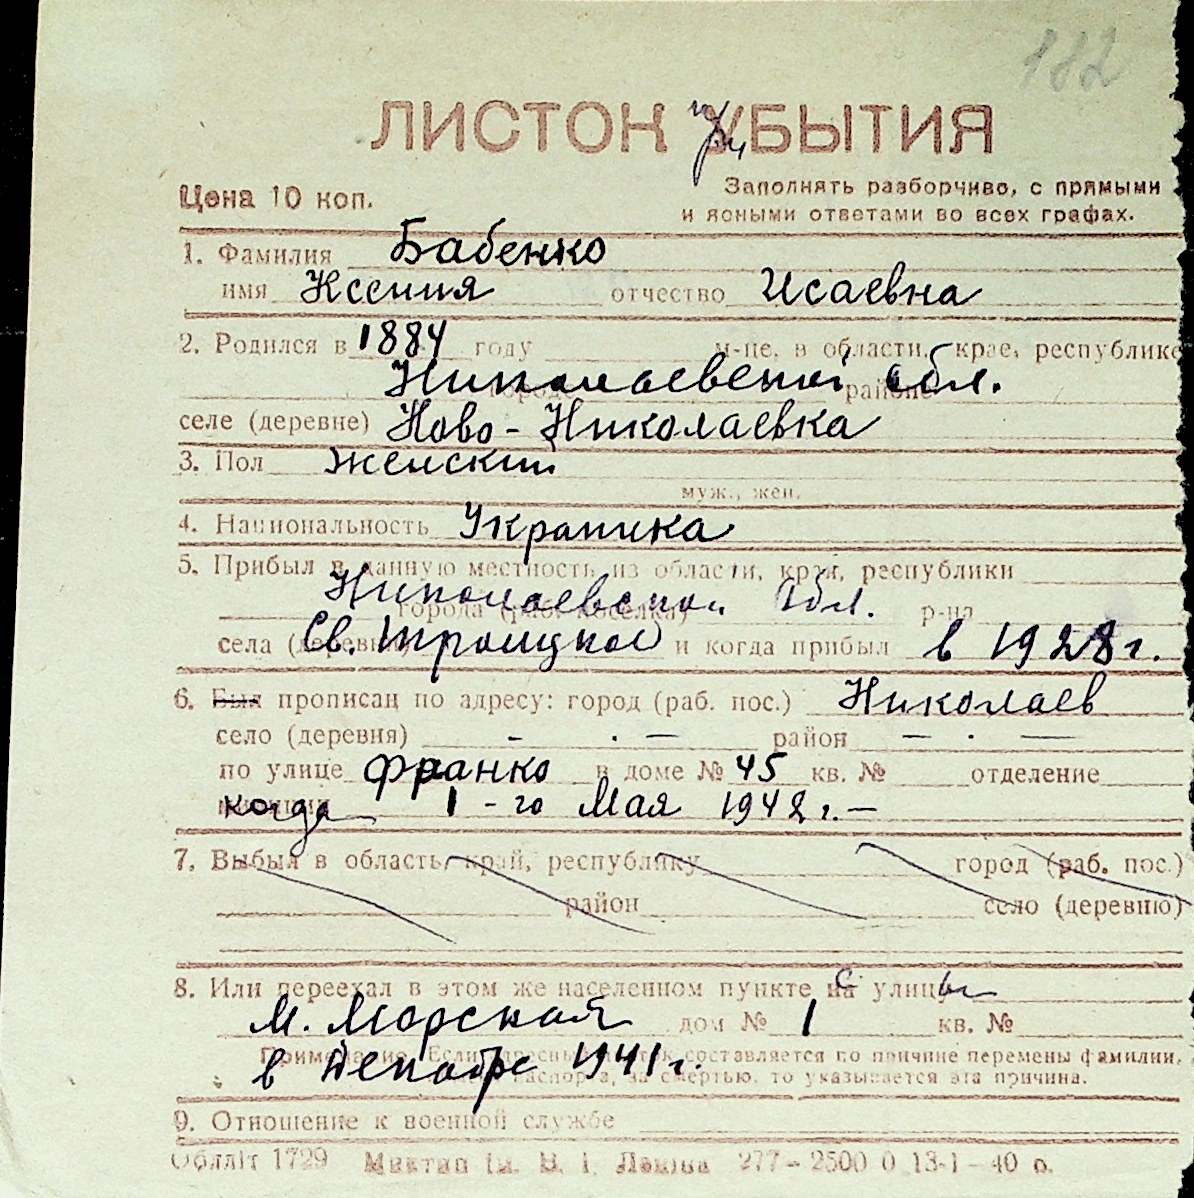 182
ЛИСТОК прибытия
Цена 10 коп.
Заполнять разборчиво, с прямыми
и ясными ответами во всех графах.
1. Фамилия Бабенко
имя Ксения отчество Исаевна
2. Родился в 1884 году м-це, в области, крае, республике
Николаевской обл. районе
селе (деревне) Ново-Николаевка
3. Пол Женский
муж., жен.
4. Национальность Украинка
5. Прибыл в данную местность из области, края, республики
Николаевской обл.
города (раб. поселка) р-на
села (деревни) Св. Троицкое и когда прибыл в 1928 г.
6. Был прописан по адресу: город (раб. пос.) Николаев
село (деревня) - . — район — . —
по улице Франко в доме № 45 кв. № отделение
милиции когда 1-го Мая 1942 г. —
7. Выбыл в область, край, республику город (раб. пос.)
район село (деревню)
8. Или переехал в этом же населенном пункте с улицы
М. Морская дом № 1 кв. №
Примечание. Если адресный листок составляется по причине перемены фамилии,
в Декабре 1941 г.
паспорта, за смертью, то указывается эта причина.
9. Отношение к военной службе
Обллiт 1729 277 — 2500 0 13-1 — 40 р.